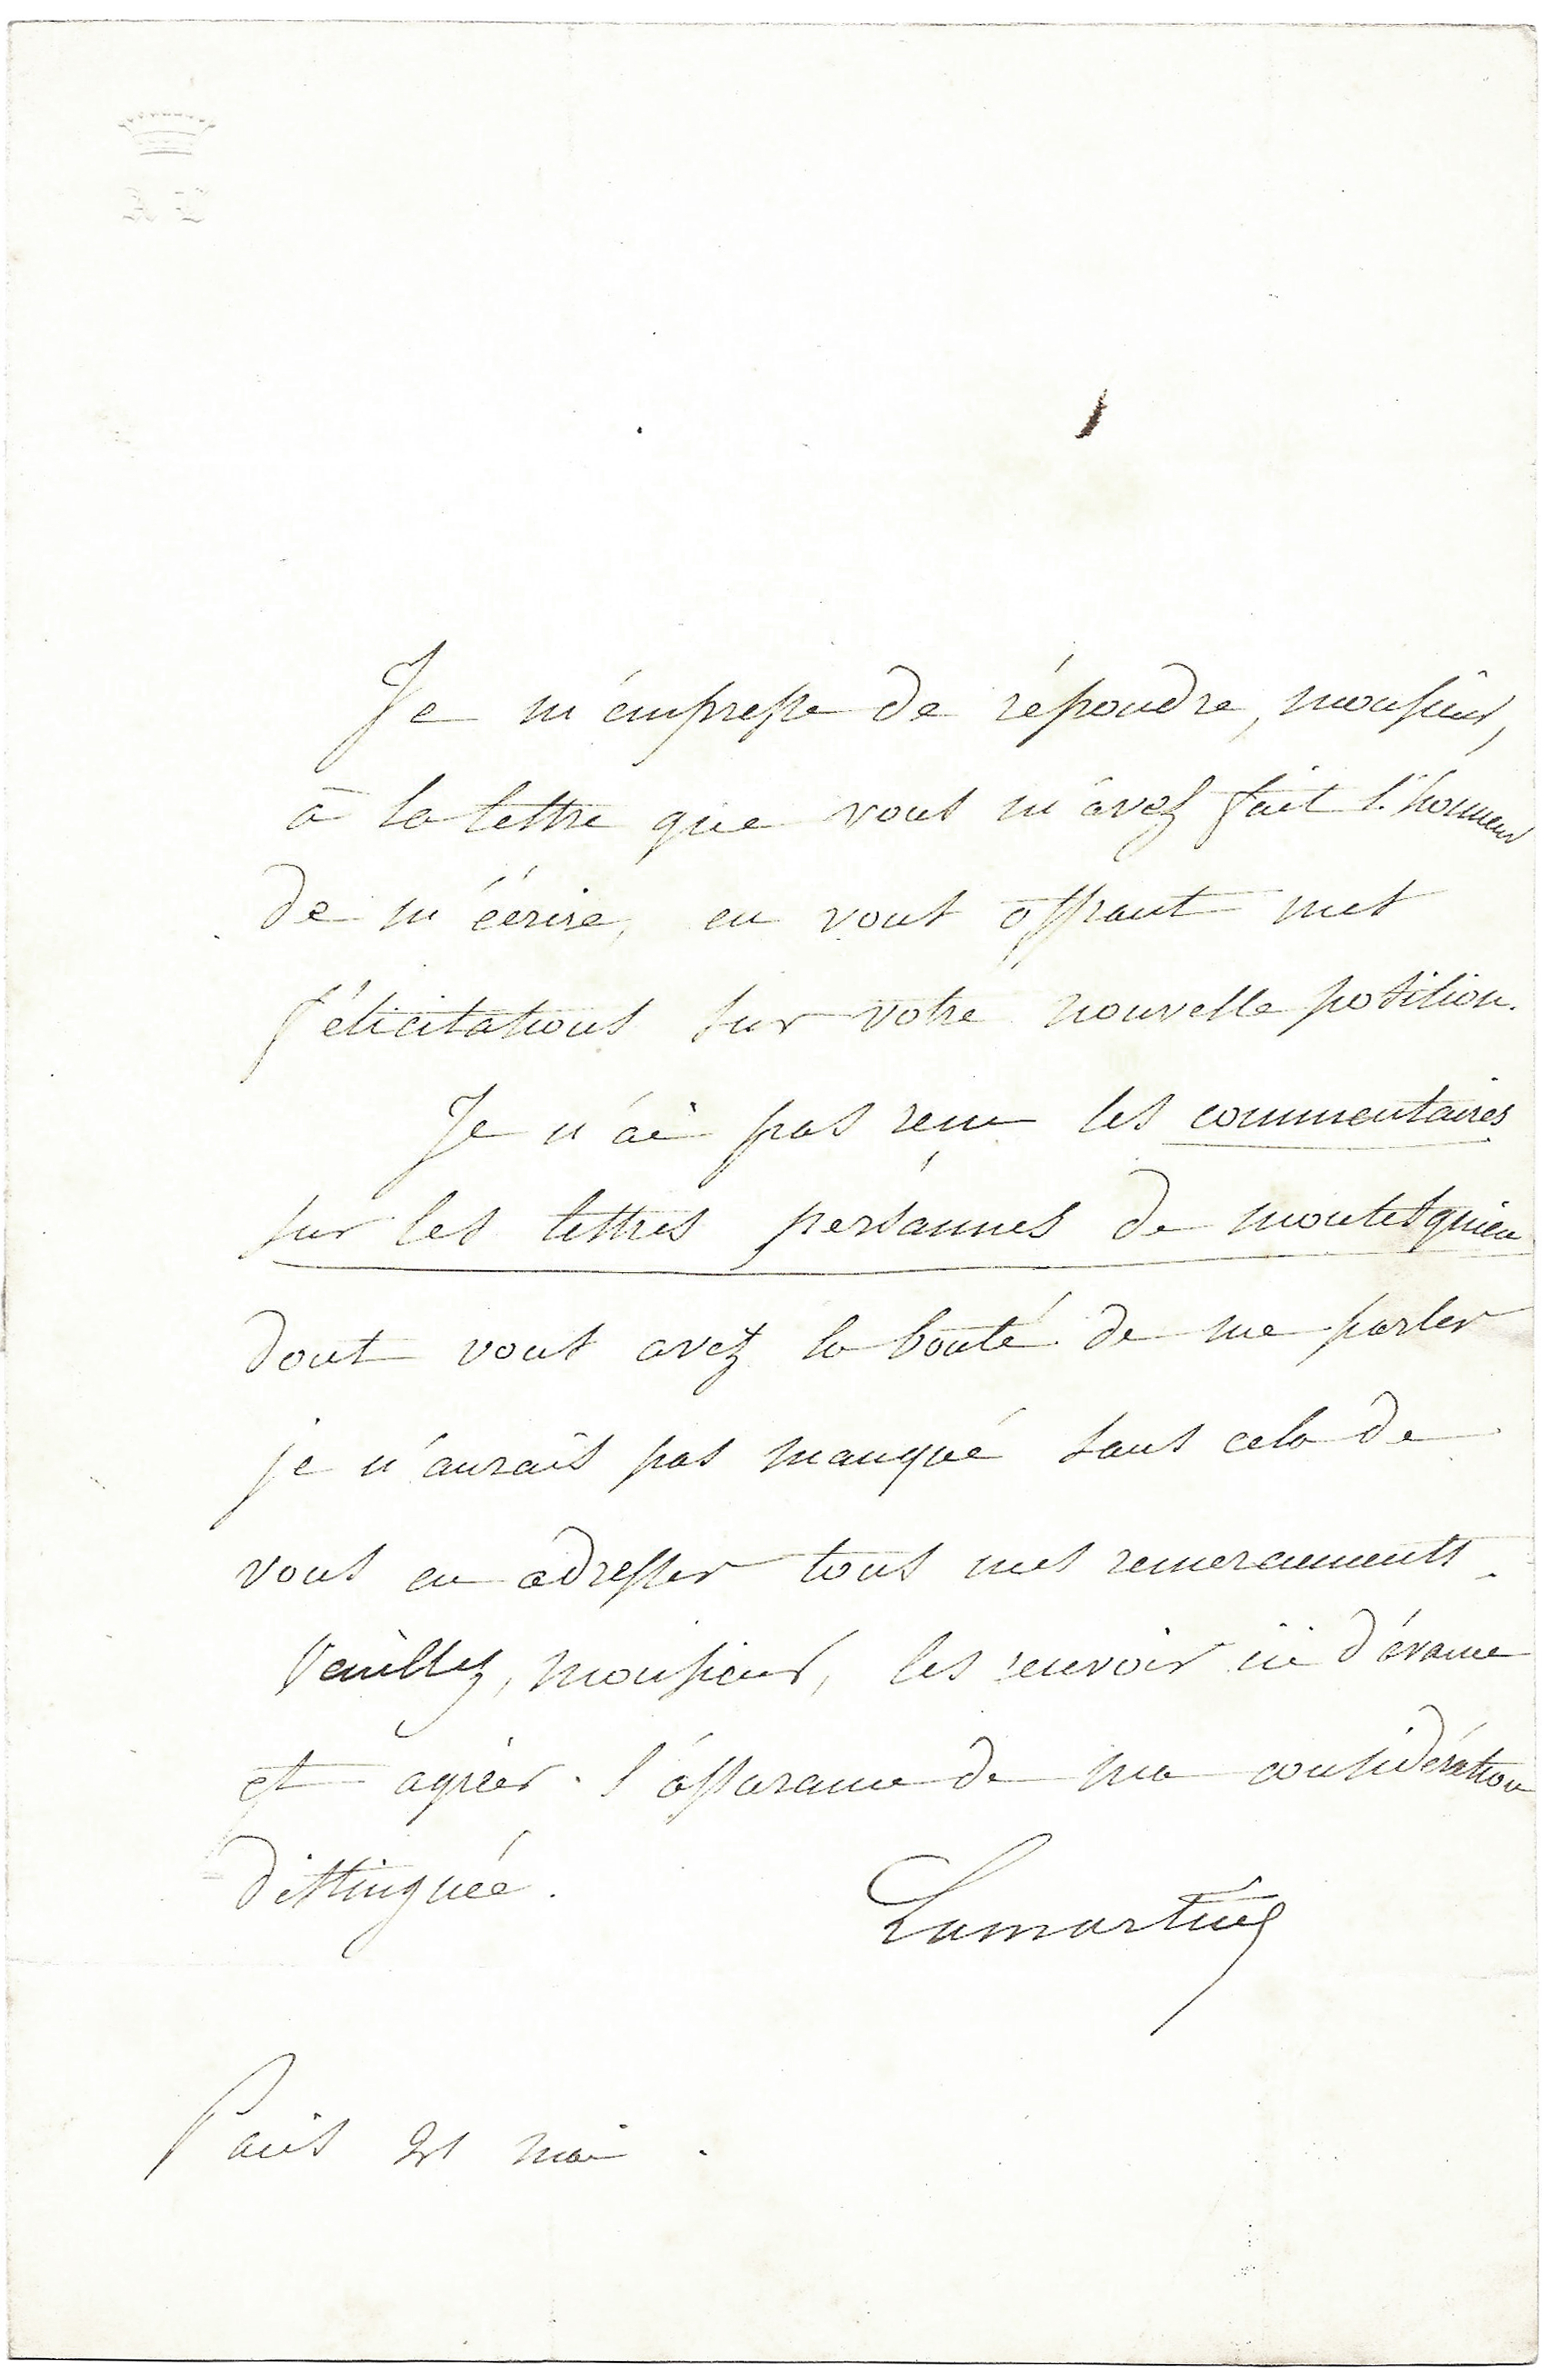 Je m'empresse de répondre, monsieur,
à la lettre que vous m'avez fait l'honneur
de m'écrire, en vous offrant mes
félicitations sur votre nouvelle position.
Je n'ai pas reçu les commentaires
sur les lettres persannes de montesquieu
dont vous avez la bonté de me parler
je n'aurais pas manqué sans cela de
vous en adresser tous mes remerciements.
Veuillez, monsieur, les recevoir ici d'avance
et agréer l'assurance de ma considération
distinguée.
Lamartine
Paris mai.